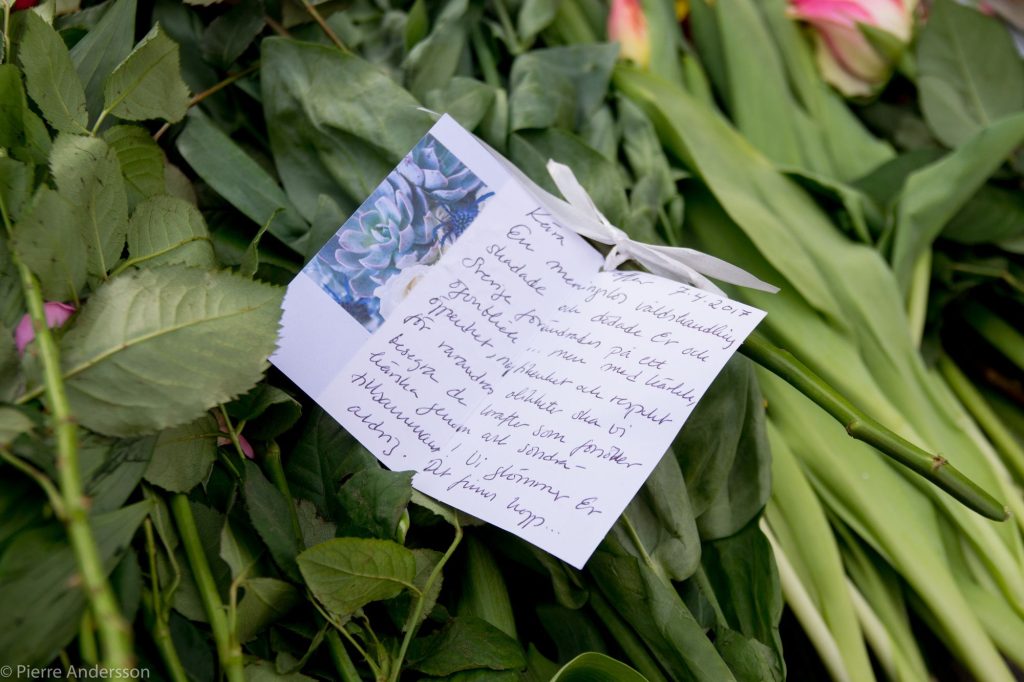 Kära offer 7.4.2017
En meningslös våldshandling
skadade dödade Er och
Sverige förändrades på ett
ögonblick... men med kärlek,
öppenhet, nyfikenhet och respekt
för varandras olikheter ska vi
besegra de krafter som försöker
härska genom att söndra-
tillsammans! Vi glömmer Er
aldrig. Det finns hopp...
© Pierre Andersson